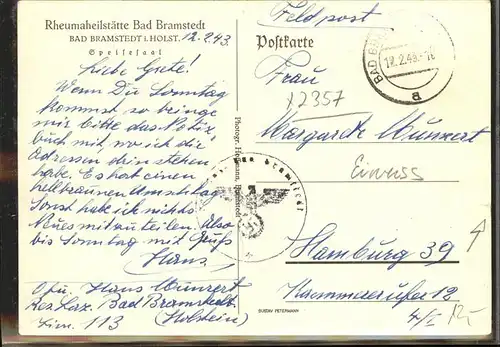 Rheumaheilstätte Bad Bramstedt
BAD BRAMSTEDT i. HOLST. 12.2.43.
Speisesaal
Liebe Grete!
Wenn Du Sonntag
kommst, so bringe
mir bitte das Notiz
buch mit, wo ich die
Adressen drin stehen
habe. Es hat einen
hellbraunen Umschlag.
Sonst habe ich nichts
Neues mitzuteilen. Also
bis Sonntag mit Gruß
Hans
Hans Wunzert
Res. Laz. Bad Bramstedt
Zim. 113 (Holstein)
Photogr. Hermann,
Feldpost
Postkarte
BAD
12.2.43
B
Frau
12357
Margarete Wunzert
Hamburg 39
Kaemmererufer 12
GUSTAV PETERMANN
12,-